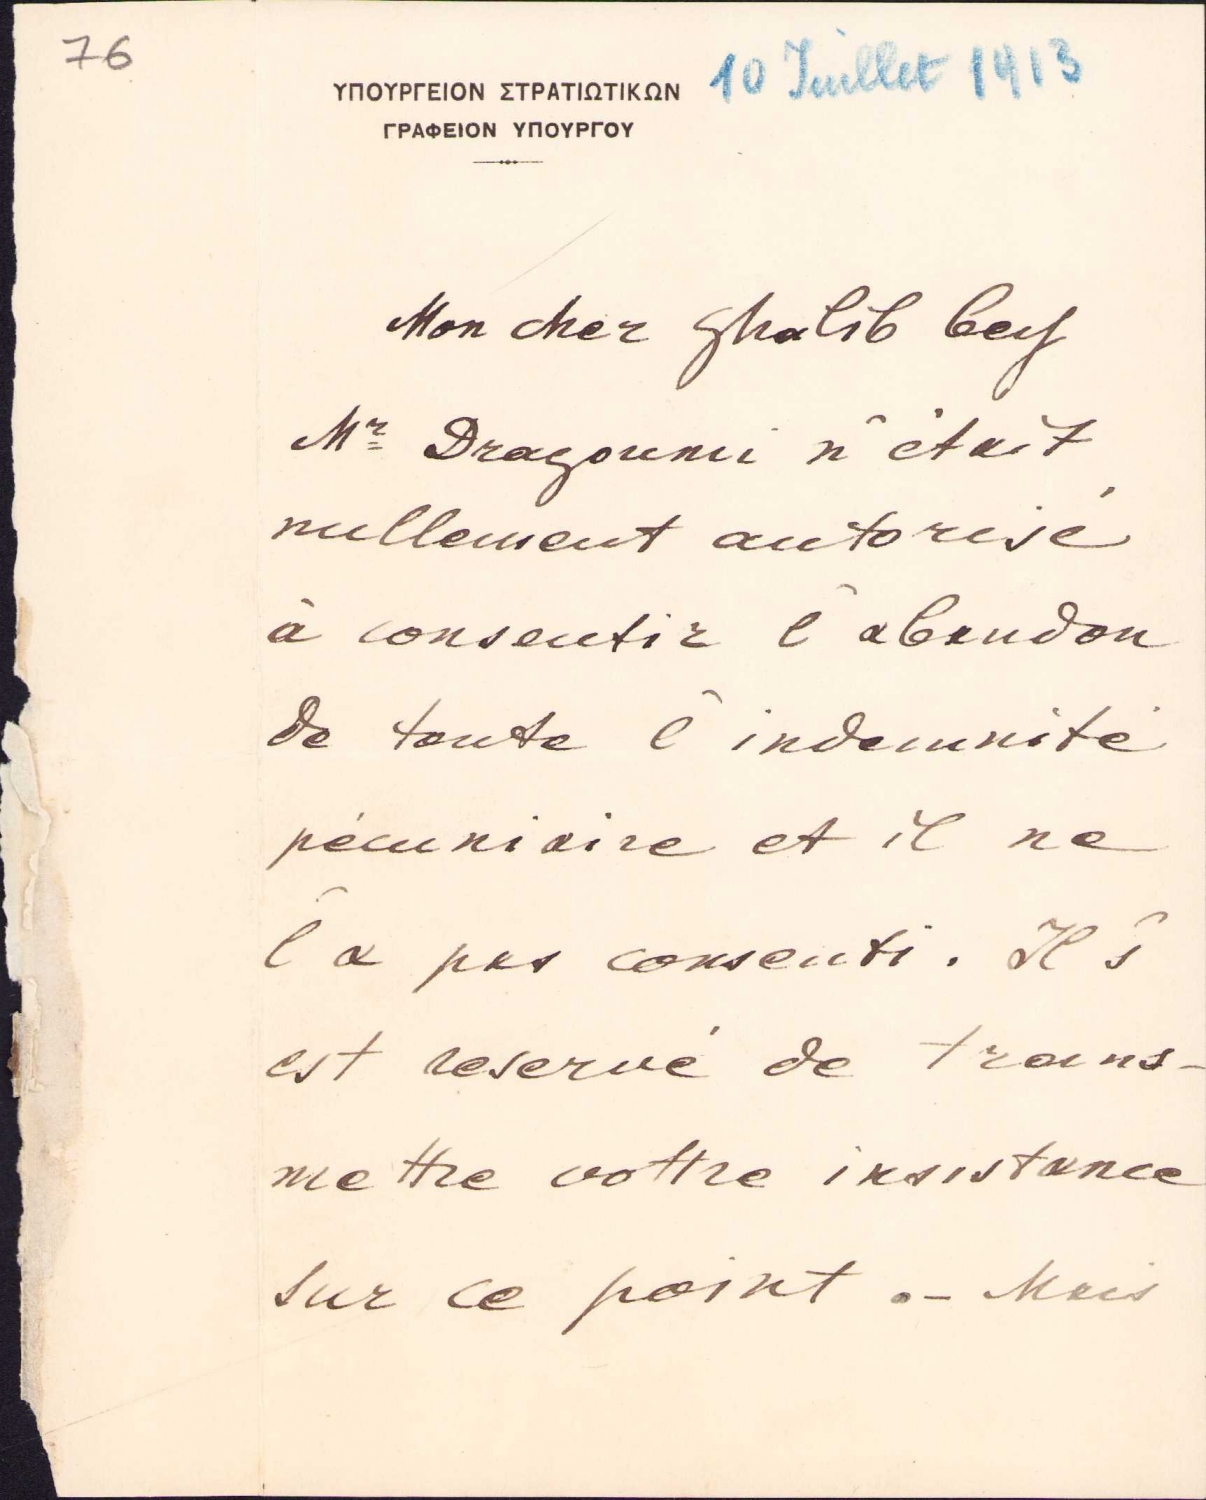 76
10 Juillet 1913
ΥΠΟΥΡΓΕΙΟΝ ΣΤΡΑΤΙΩΤΙΚΩΝ
ΓΡΑΦΕΙΟΝ ΥΠΟΥΡΓΟΥ
Mon cher Ghalib bey
Mr Dragoumi n'était
nullement autorisé
à consentir l'abandon
de toute l'indemnité
pécuniaire et il ne
l'a pas consenti. Il s'
est reservé de trans-
mettre vottre insistance
sur ce point .- Mais